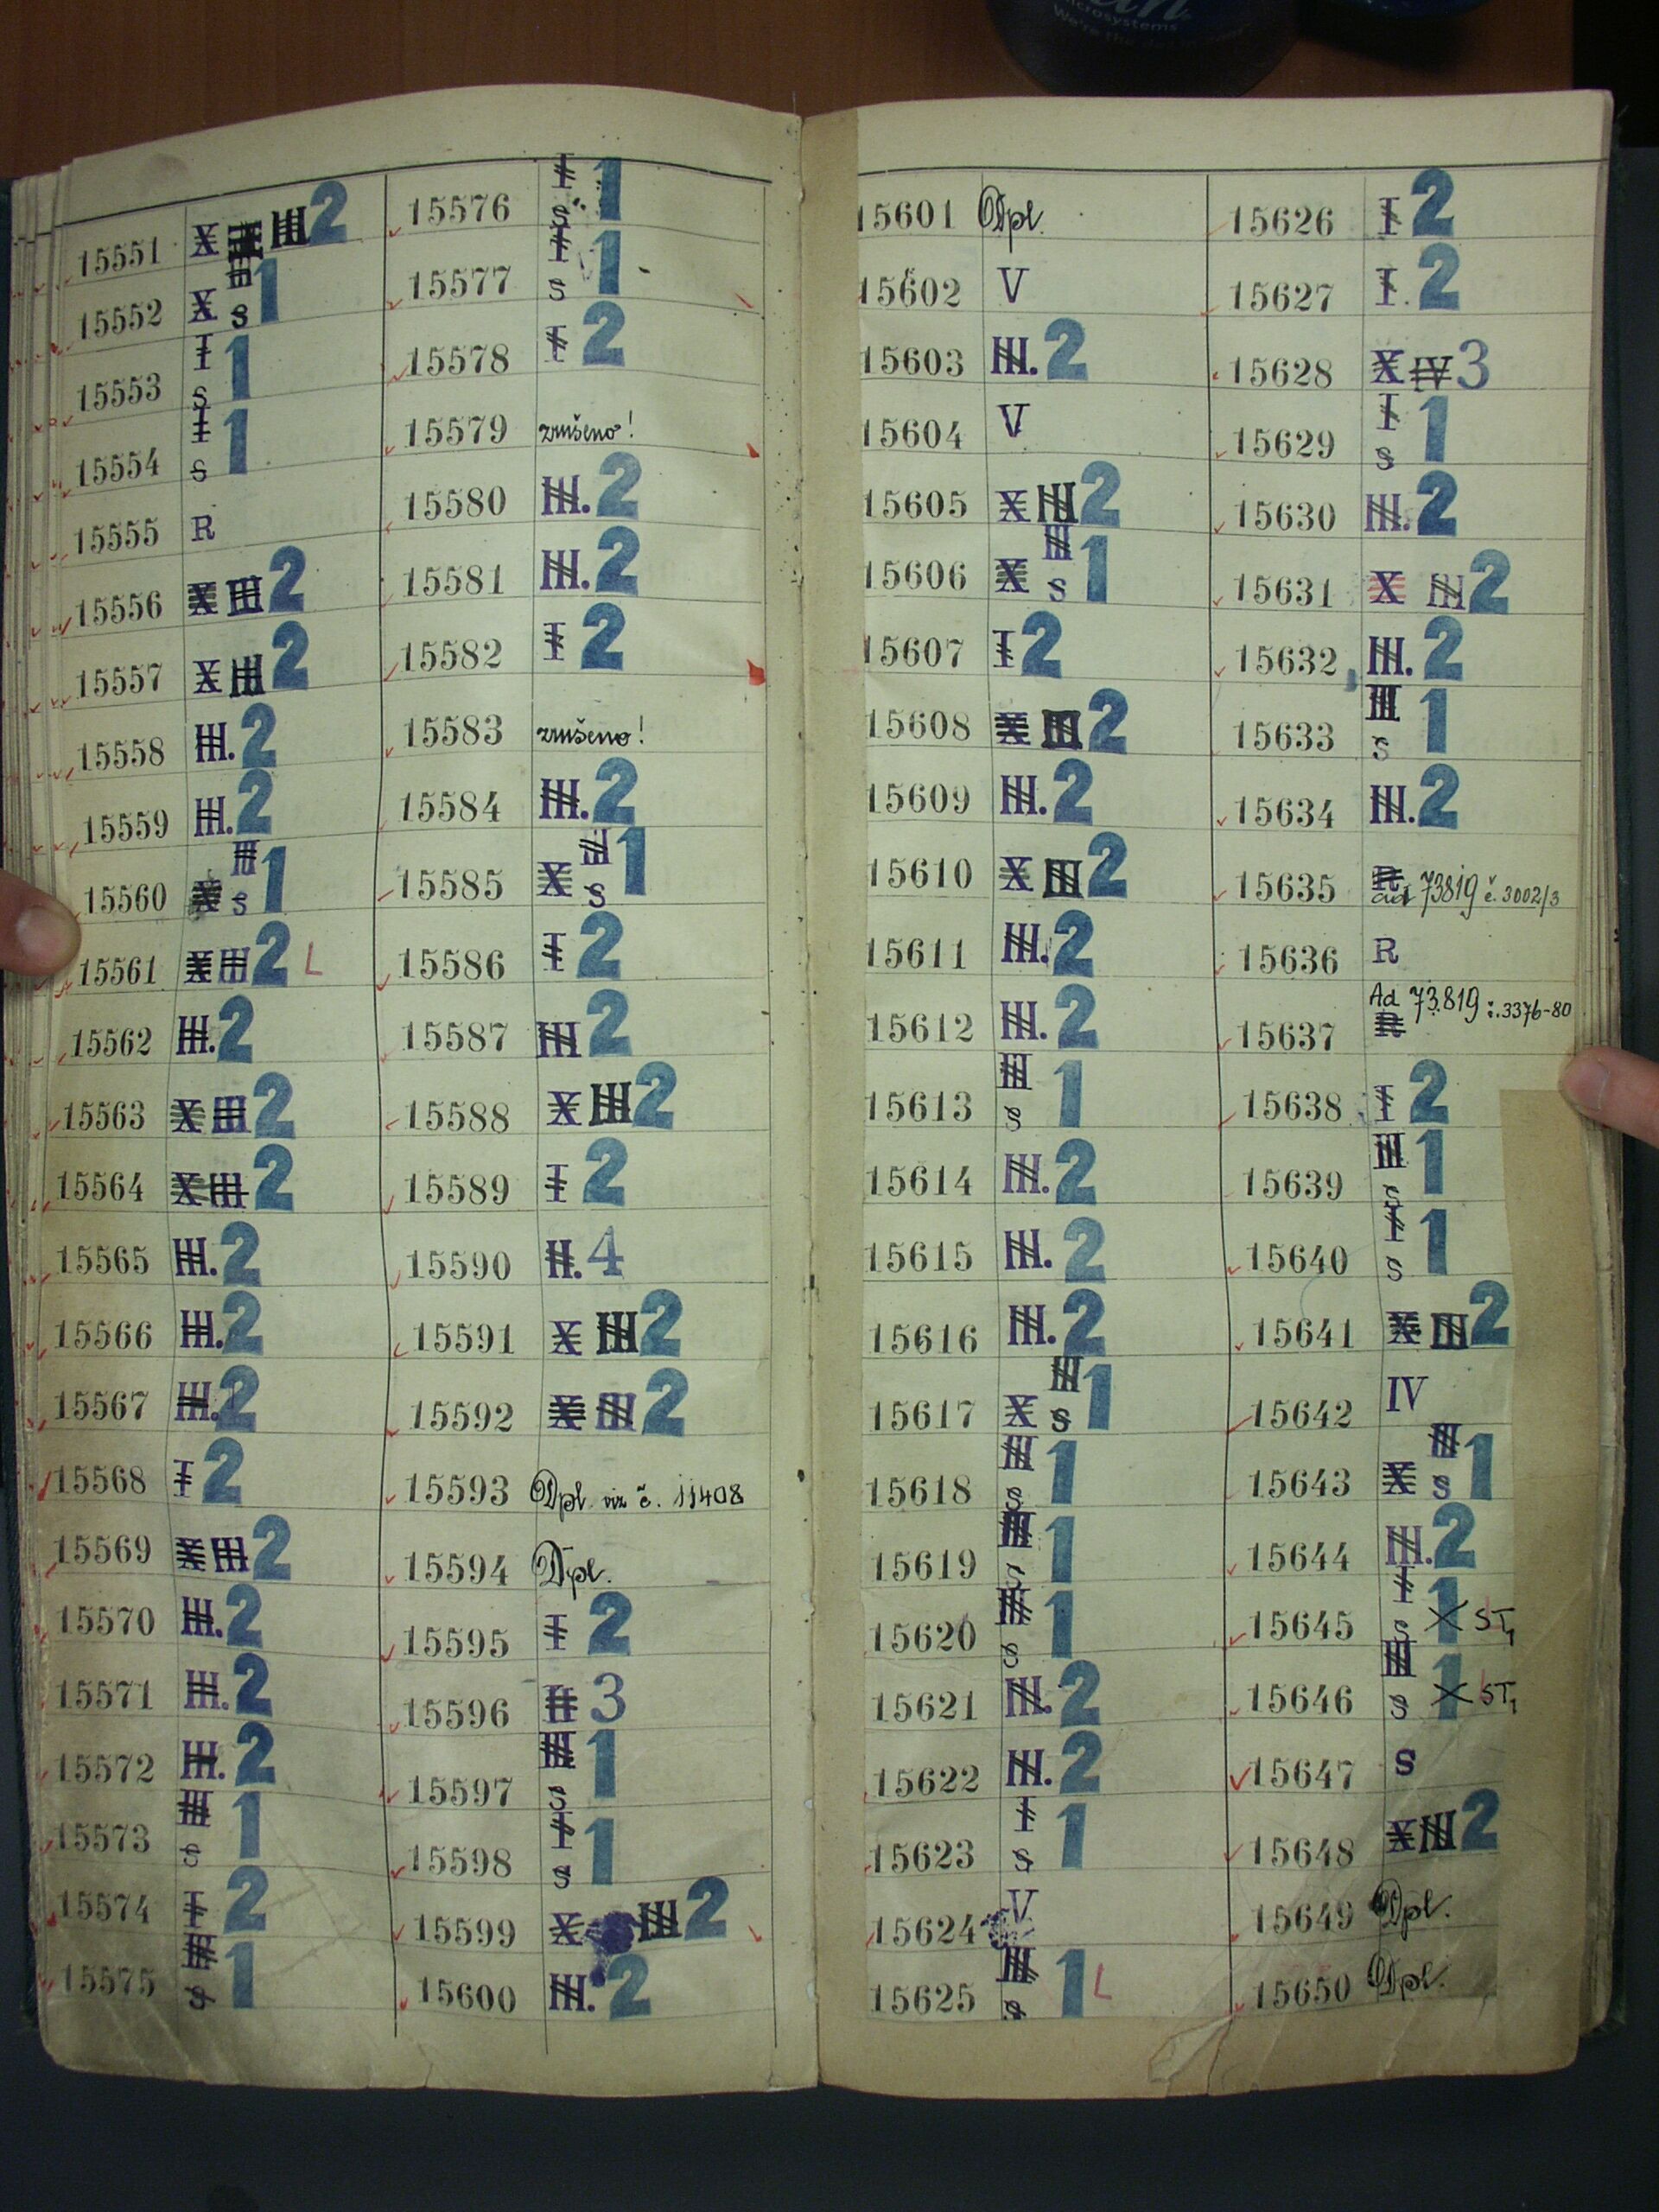 Microsystems
We're the dot in .com
15551 X III III 2
15552 X III S 1
15553 I S 1
15554 I S 1
15555 R
15556 X III 2
15557 X III 2
15558 III. 2
15559 III. 2
15560 X III S 1
15561 X III 2 L
15562 III. 2
15563 X III 2
15564 X III 2
15565 III. 2
15566 III. 2
15567 III. 2
15568 I 2
15569 X III 2
15570 III. 2
15571 III. 2
15572 III. 2
15573 III S 1
15574 I 2
15575 III S 1
15576 I S 1
15577 I S 1
15578 I 2
15579 zrušeno!
15580 III. 2
15581 III. 2
15582 I 2
15583 zrušeno!
15584 III. 2
15585 X III S 1
15586 I 2
15587 III 2
15588 X III 2
15589 I 2
15590 II. 4
15591 X III 2
15592 X III 2
15593 Dpl. viz č. 11408
15594 Dpl.
15595 I 2
15596 II 3
15597 III S 1
15598 I S 1
15599 X III 2
15600 III. 2
15601 Dpl.
15602 V
15603 III. 2
15604 V
15605 X III 2
15606 X III S 1
15607 I 2
15608 X III 2
15609 III. 2
15610 X III 2
15611 III. 2
15612 III. 2
15613 III S 1
15614 III. 2
15615 III. 2
15616 III. 2
15617 X III S 1
15618 III S 1
15619 III S 1
15620 III S 1
15621 III. 2
15622 III. 2
15623 I S 1
15624 V
15625 III S 1 L
15626 I 2
15627 I. 2
15628 X IV 3
15629 I S 1
15630 III. 2
15631 X III 2
15632 III. 2
15633 III S 1
15634 III. 2
15635 R ad 73819 č. 3002/3
15636 R
15637 Ad 73.819 č. 3376-80 R
15638 I 2
15639 III S 1
15640 I S 1
15641 X III 2
15642 IV
15643 X III S 1
15644 III. 2
15645 I S 1 X ST1
15646 III S 1 X ST1
15647 S
15648 X III 2
15649 Dpl.
15650 Dpl.